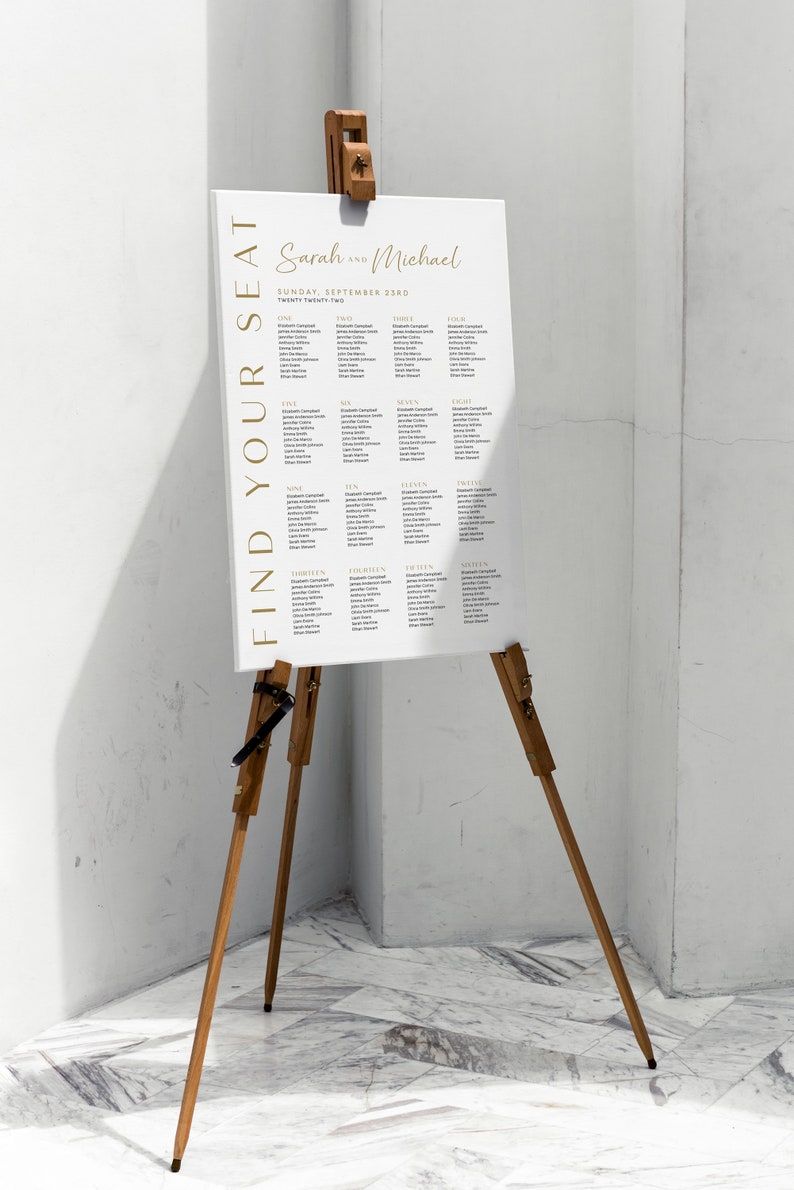 FIND YOUR SEAT
Sarah AND Michael
SUNDAY, SEPTEMBER 23RD
TWENTY TWENTY-TWO
ONE
Elizabeth Campbell
James Anderson Smith
Jennifer Collins
Anthony Willims
Emma Smith
John De Marco
Olivia Smith Johnson
Liam Evans
Sarah Martine
Ethan Stewart
TWO
Elizabeth Campbell
James Anderson Smith
Jennifer Collins
Anthony Willims
Emma Smith
John De Marco
Olivia Smith Johnson
Liam Evans
Sarah Martine
Ethan Stewart
THREE
Elizabeth Campbell
James Anderson Smith
Jennifer Collins
Anthony Willims
Emma Smith
John De Marco
Olivia Smith Johnson
Liam Evans
Sarah Martine
Ethan Stewart
FOUR
Elizabeth Campbell
James Anderson Smith
Jennifer Collins
Anthony Willims
Emma Smith
John De Marco
Olivia Smith Johnson
Liam Evans
Sarah Martine
Ethan Stewart
FIVE
Elizabeth Campbell
James Anderson Smith
Jennifer Collins
Anthony Willims
Emma Smith
John De Marco
Olivia Smith Johnson
Liam Evans
Sarah Martine
Ethan Stewart
SIX
Elizabeth Campbell
James Anderson Smith
Jennifer Collins
Anthony Willims
Emma Smith
John De Marco
Olivia Smith Johnson
Liam Evans
Sarah Martine
Ethan Stewart
SEVEN
Elizabeth Campbell
James Anderson Smith
Jennifer Collins
Anthony Willims
Emma Smith
John De Marco
Olivia Smith Johnson
Liam Evans
Sarah Martine
Ethan Stewart
EIGHT
Elizabeth Campbell
James Anderson Smith
Jennifer Collins
Anthony Willims
Emma Smith
John De Marco
Olivia Smith Johnson
Liam Evans
Sarah Martine
Ethan Stewart
NINE
Elizabeth Campbell
James Anderson Smith
Jennifer Collins
Anthony Willims
Emma Smith
John De Marco
Olivia Smith Johnson
Liam Evans
Sarah Martine
Ethan Stewart
TEN
Elizabeth Campbell
James Anderson Smith
Jennifer Collins
Anthony Willims
Emma Smith
John De Marco
Olivia Smith Johnson
Liam Evans
Sarah Martine
Ethan Stewart
ELEVEN
Elizabeth Campbell
James Anderson Smith
Jennifer Collins
Anthony Willims
Emma Smith
John De Marco
Olivia Smith Johnson
Liam Evans
Sarah Martine
Ethan Stewart
TWELVE
Elizabeth Campbell
James Anderson Smith
Jennifer Collins
Anthony Willims
Emma Smith
John De Marco
Olivia Smith Johnson
Liam Evans
Sarah Martine
Ethan Stewart
THIRTEEN
Elizabeth Campbell
James Anderson Smith
Jennifer Collins
Anthony Willims
Emma Smith
John De Marco
Olivia Smith Johnson
Liam Evans
Sarah Martine
Ethan Stewart
FOURTEEN
Elizabeth Campbell
James Anderson Smith
Jennifer Collins
Anthony Willims
Emma Smith
John De Marco
Olivia Smith Johnson
Liam Evans
Sarah Martine
Ethan Stewart
FIFTEEN
Elizabeth Campbell
James Anderson Smith
Jennifer Collins
Anthony Willims
Emma Smith
John De Marco
Olivia Smith Johnson
Liam Evans
Sarah Martine
Ethan Stewart
SIXTEEN
Elizabeth Campbell
James Anderson Smith
Jennifer Collins
Anthony Willims
Emma Smith
John De Marco
Olivia Smith Johnson
Liam Evans
Sarah Martine
Ethan Stewart